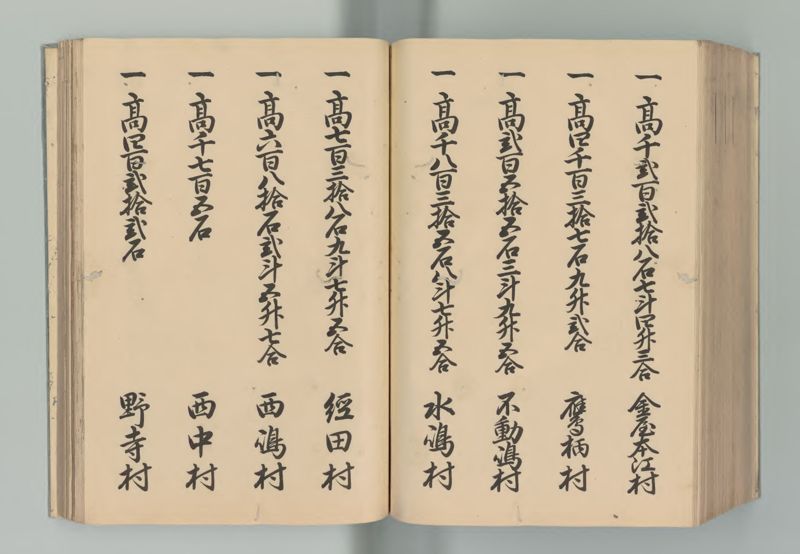 一 髙千弐百弐拾八石七斗四升三合 金屋本江村
一 髙四千百三拾七石九升弐合 鷹栖村
一 髙弐百五拾五石三斗九升五合 不動嶋村
一 髙千八百三拾五石八斗七升五合 水嶋村
一 髙七百三拾八石九斗七升五合 経田村
一 髙六百八拾石弐斗五升七合 西嶋村
一 髙千七百五石 西中村
一 髙四百弐拾弐石 野寺村